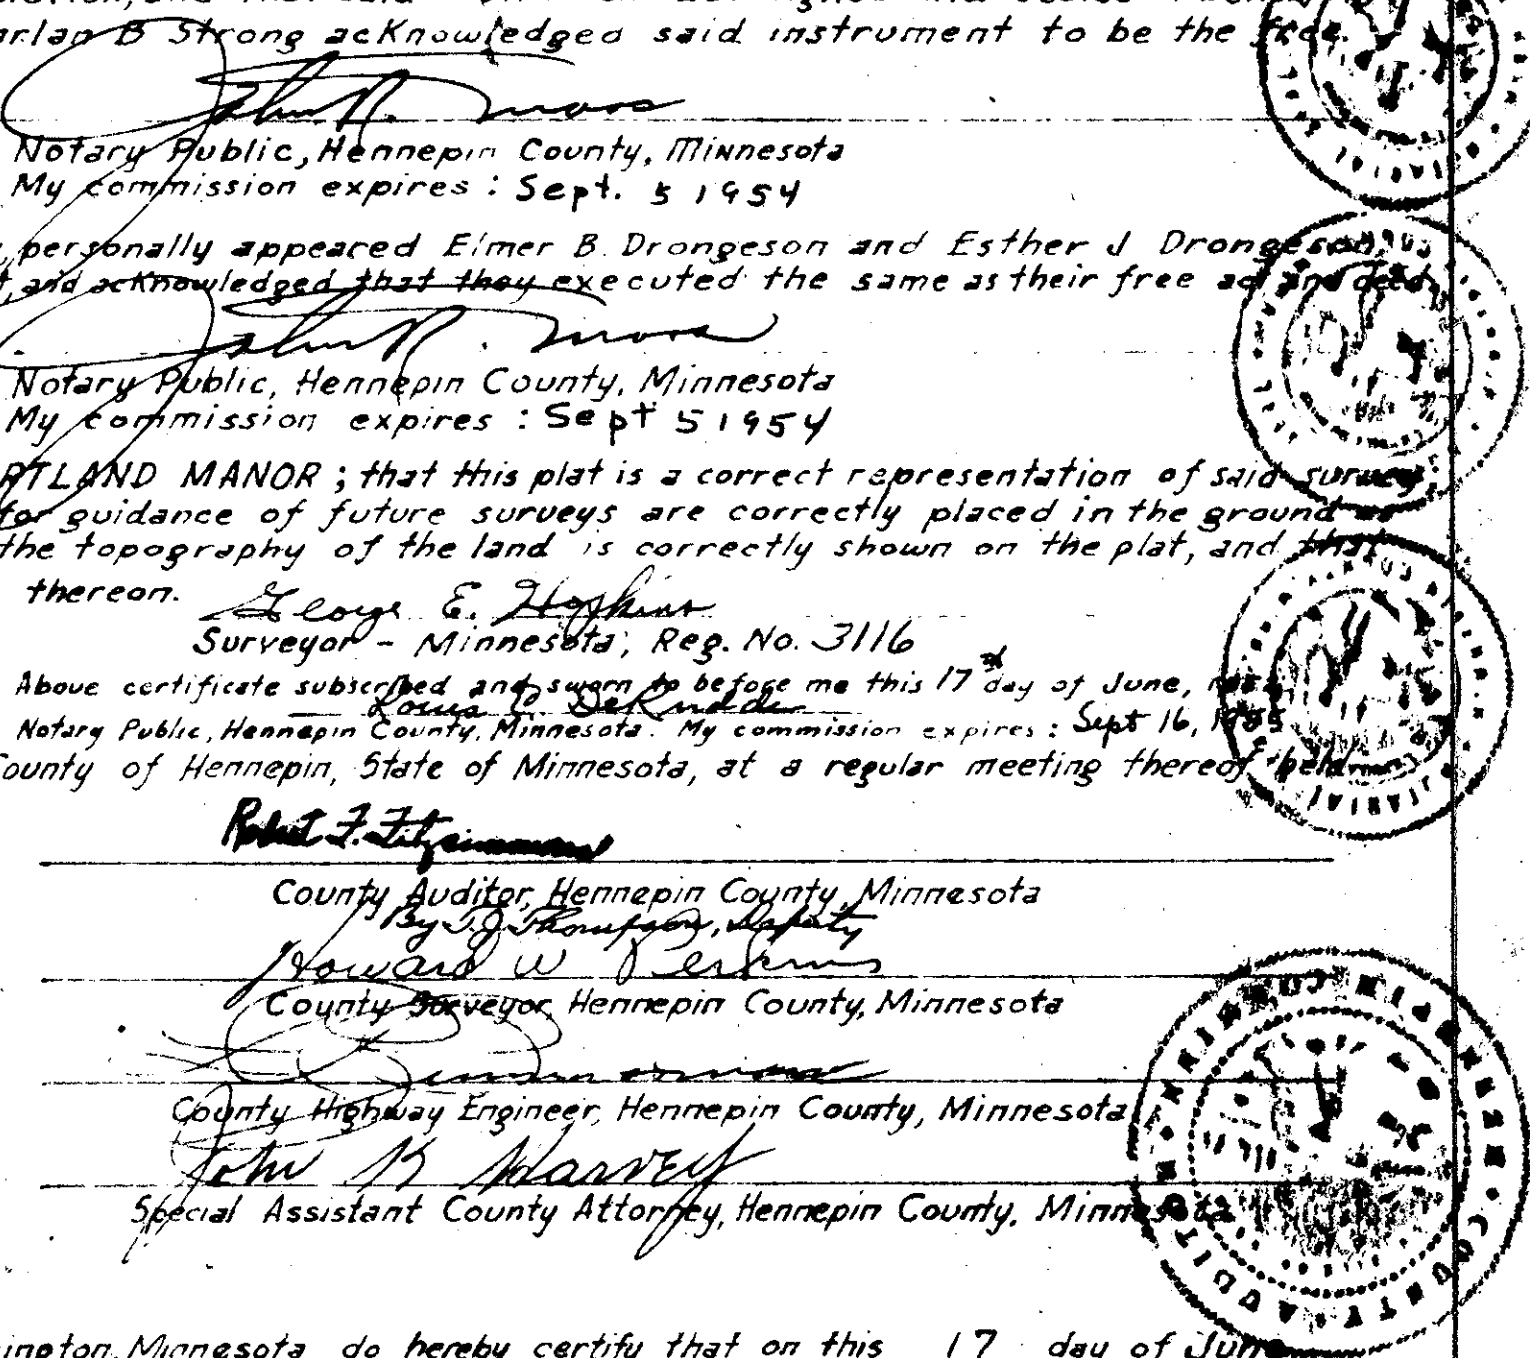 and that said
arlan B Strong acknowledged said instrument to be the free
John R. Moss
Notary Public, Hennepin County, Minnesota
My commission expires : Sept. 5 1954
personally appeared Elmer B. Drongeson and Esther J Drongeson,
t, and acknowledged that they executed the same as their free act and deed.
John R. Moss
Notary Public, Hennepin County, Minnesota
My commission expires : Sept 5 1954
RTLAND MANOR ; that this plat is a correct representation of said survey
for guidance of future surveys are correctly placed in the ground as
the topography of the land is correctly shown on the plat, and that
thereon.
George E. Hopkins
Surveyor - Minnesota, Reg. No. 3116
Above certificate subscribed and sworn to before me this 17 day of June,
Louis C. DeRudder
Notary Public, Hennepin County, Minnesota. My commission expires : Sept 16, 1955
County of Hennepin, State of Minnesota, at a regular meeting thereof held
Robert F. Fitzsimmons
County Auditor, Hennepin County, Minnesota
By T.J. Thompson, Deputy
Howard W Perkins
County Surveyor, Hennepin County, Minnesota
County Highway Engineer, Hennepin County, Minnesota
John K Harvey
Special Assistant County Attorney, Hennepin County, Minnesota
HENNEPIN COUNTY AUDITOR
COUNTY MINN
ington, Minnesota do hereby certify that on this 17 day of June